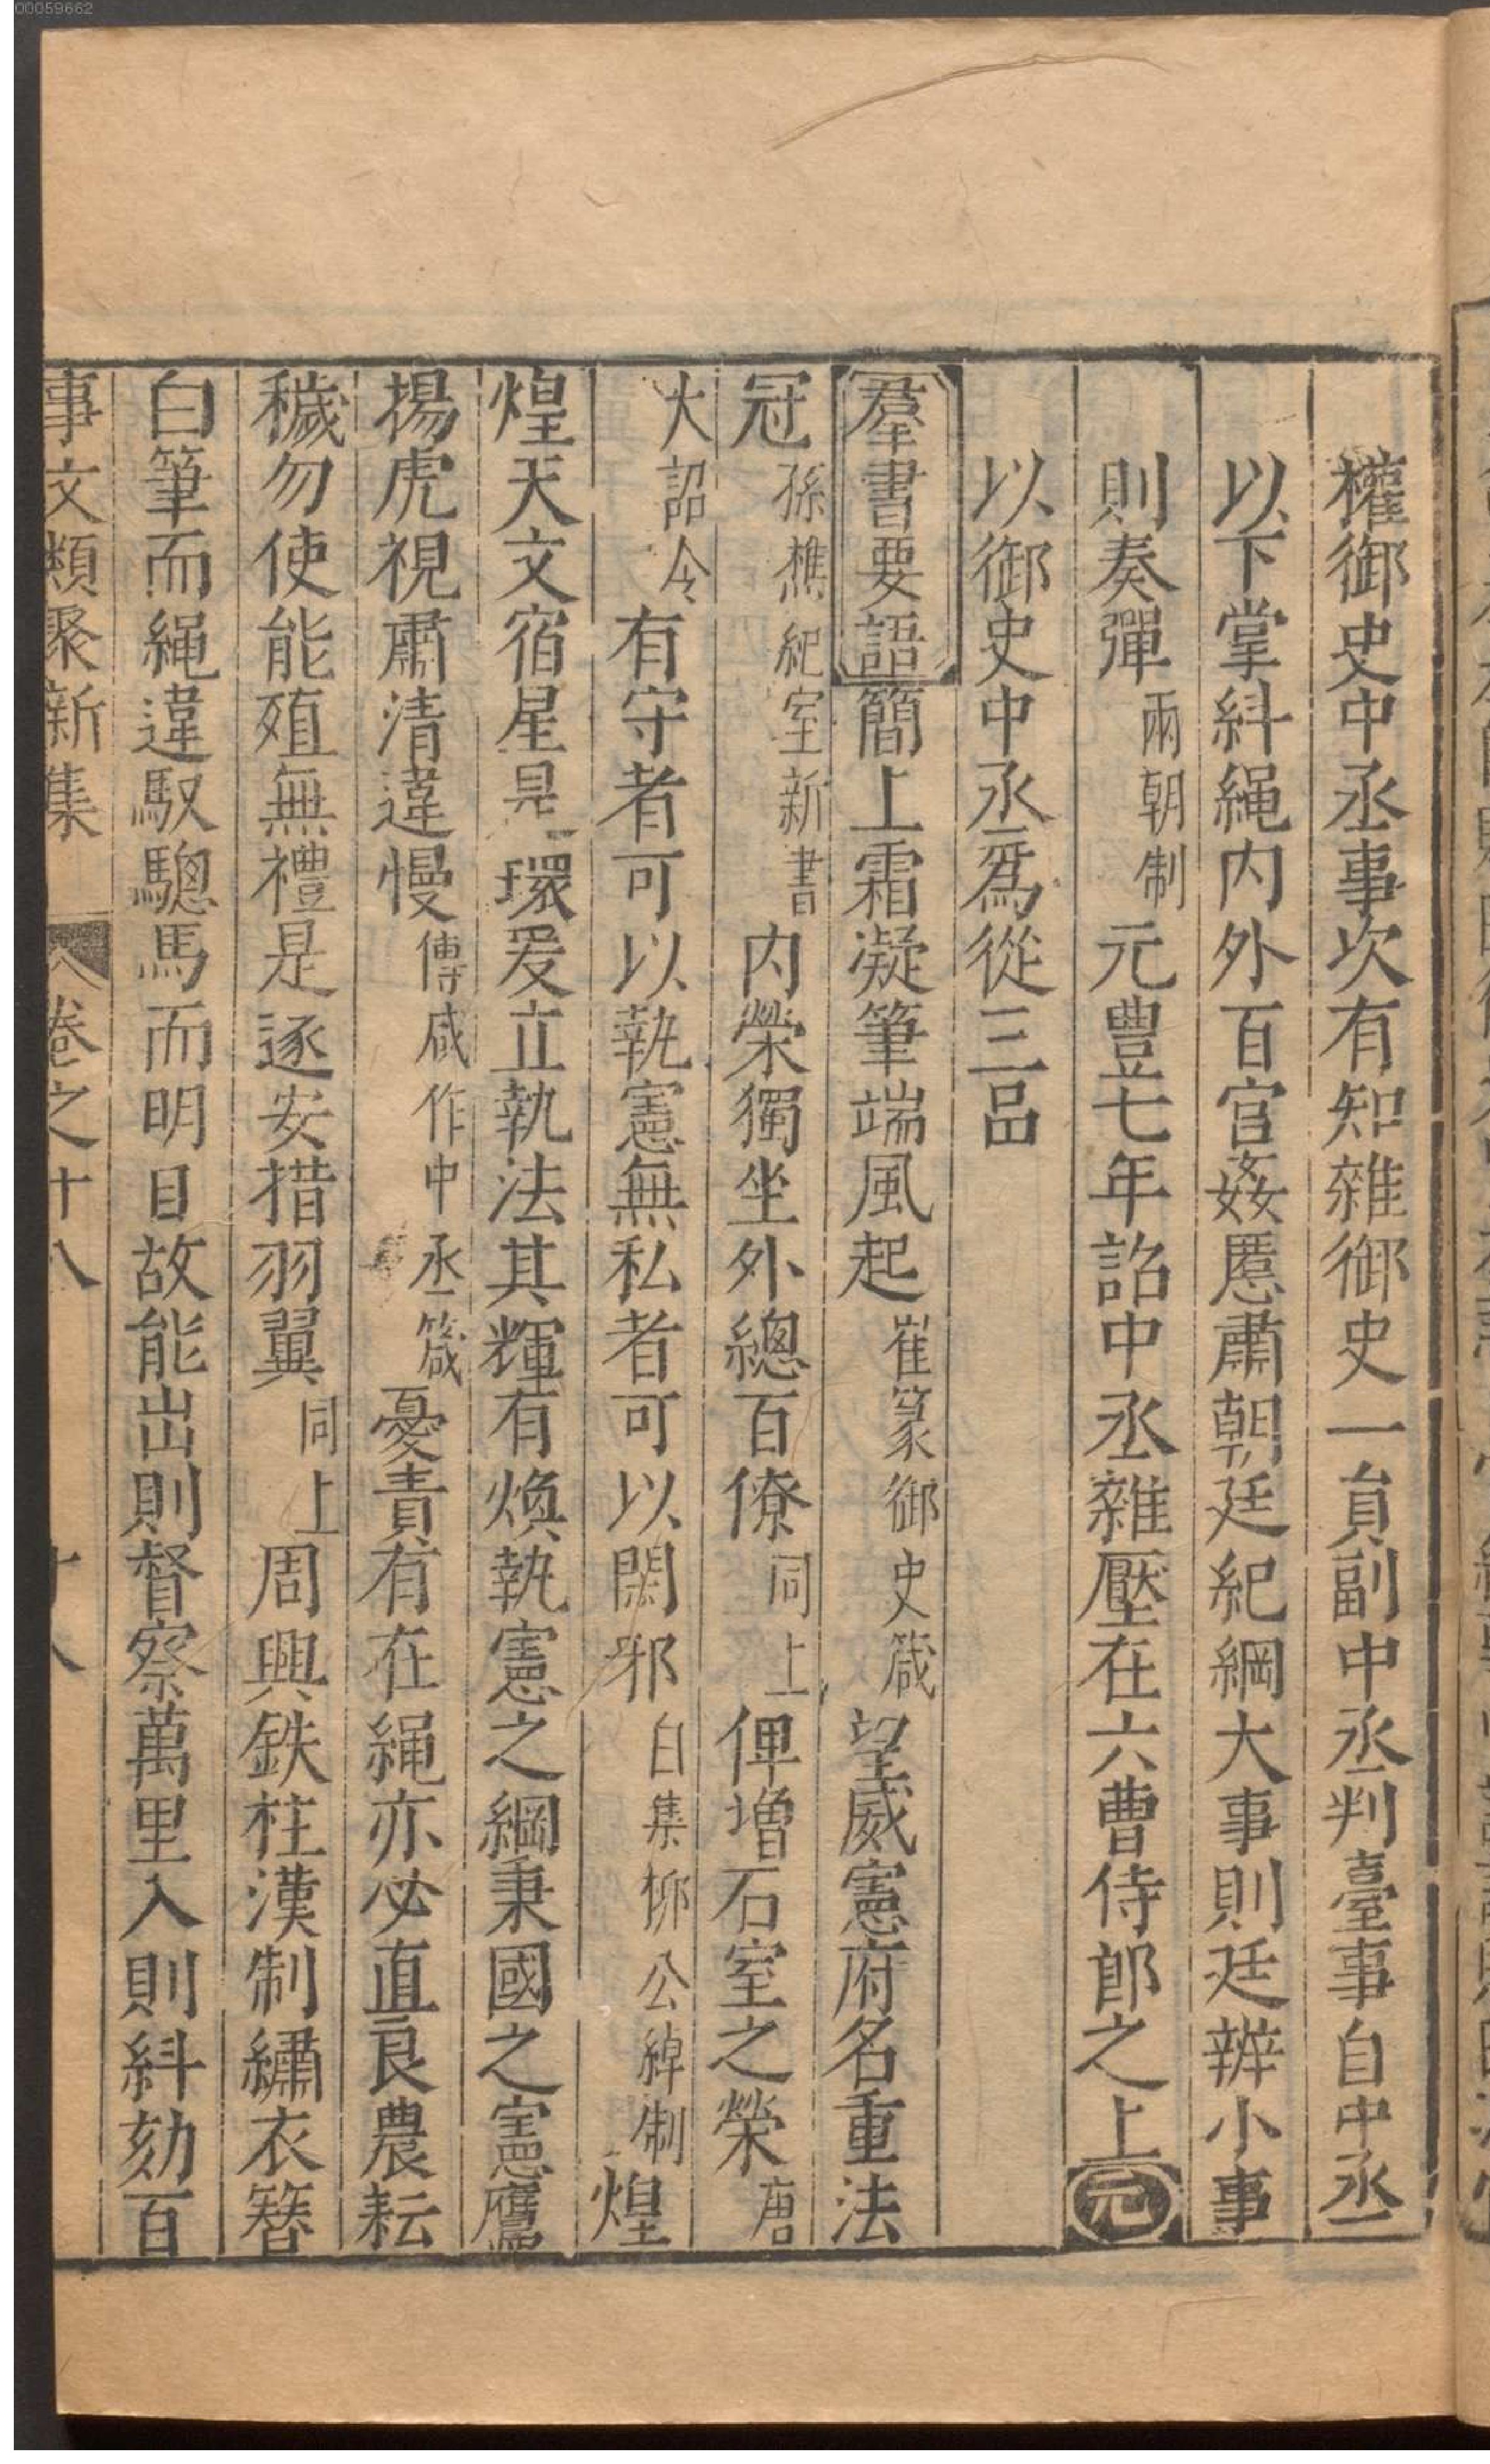 00059662
權御史中丞事次有知雜御史一貟副中丞判臺事自中丞
以下掌糾繩内外百官姦慝肅朝廷紀綱大事則廷辨小事
則奏彈兩朝制元豊七年詔中丞雜壓在六曹侍郎之上元
以御史中丞爲從三品
羣書要語簡上霜凝筆端風起崔篆御史箴望威憲府名重法
冠孫樵紀室新書内榮獨坐外總百僚同上俾增石室之榮唐
大詔令有守者可以執憲無私者可以閑邪白集柳公綽制煌
煌天文宿星是環爰立執法其輝有煥執憲之綱秉國之憲鷹
揚虎視肅清違慢傅咸作中丞箴憂責有在繩亦必直良農耘
穢勿使能殖無禮是逐安措羽翼同上周興鉄柱漢制繡衣簪
白筆而繩違馭驄馬而明目故能出則督察萬里入則糾劾百
事文類聚新集 卷之十八 十八